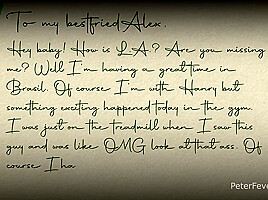 To my bestfried Alex.
Hey baby! How is L.A.? Are you missing
me? Well I'm having a great time in
Brasil. Of course I'm with Hanry but
something exciting happened today in the gym.
I was just on the treadmill when I saw this
guy and was like OMG look at that ass. Of
course I ha
PeterFeve